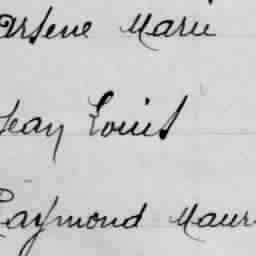 Arsene Marie
Jean Louis
Raymond Maur